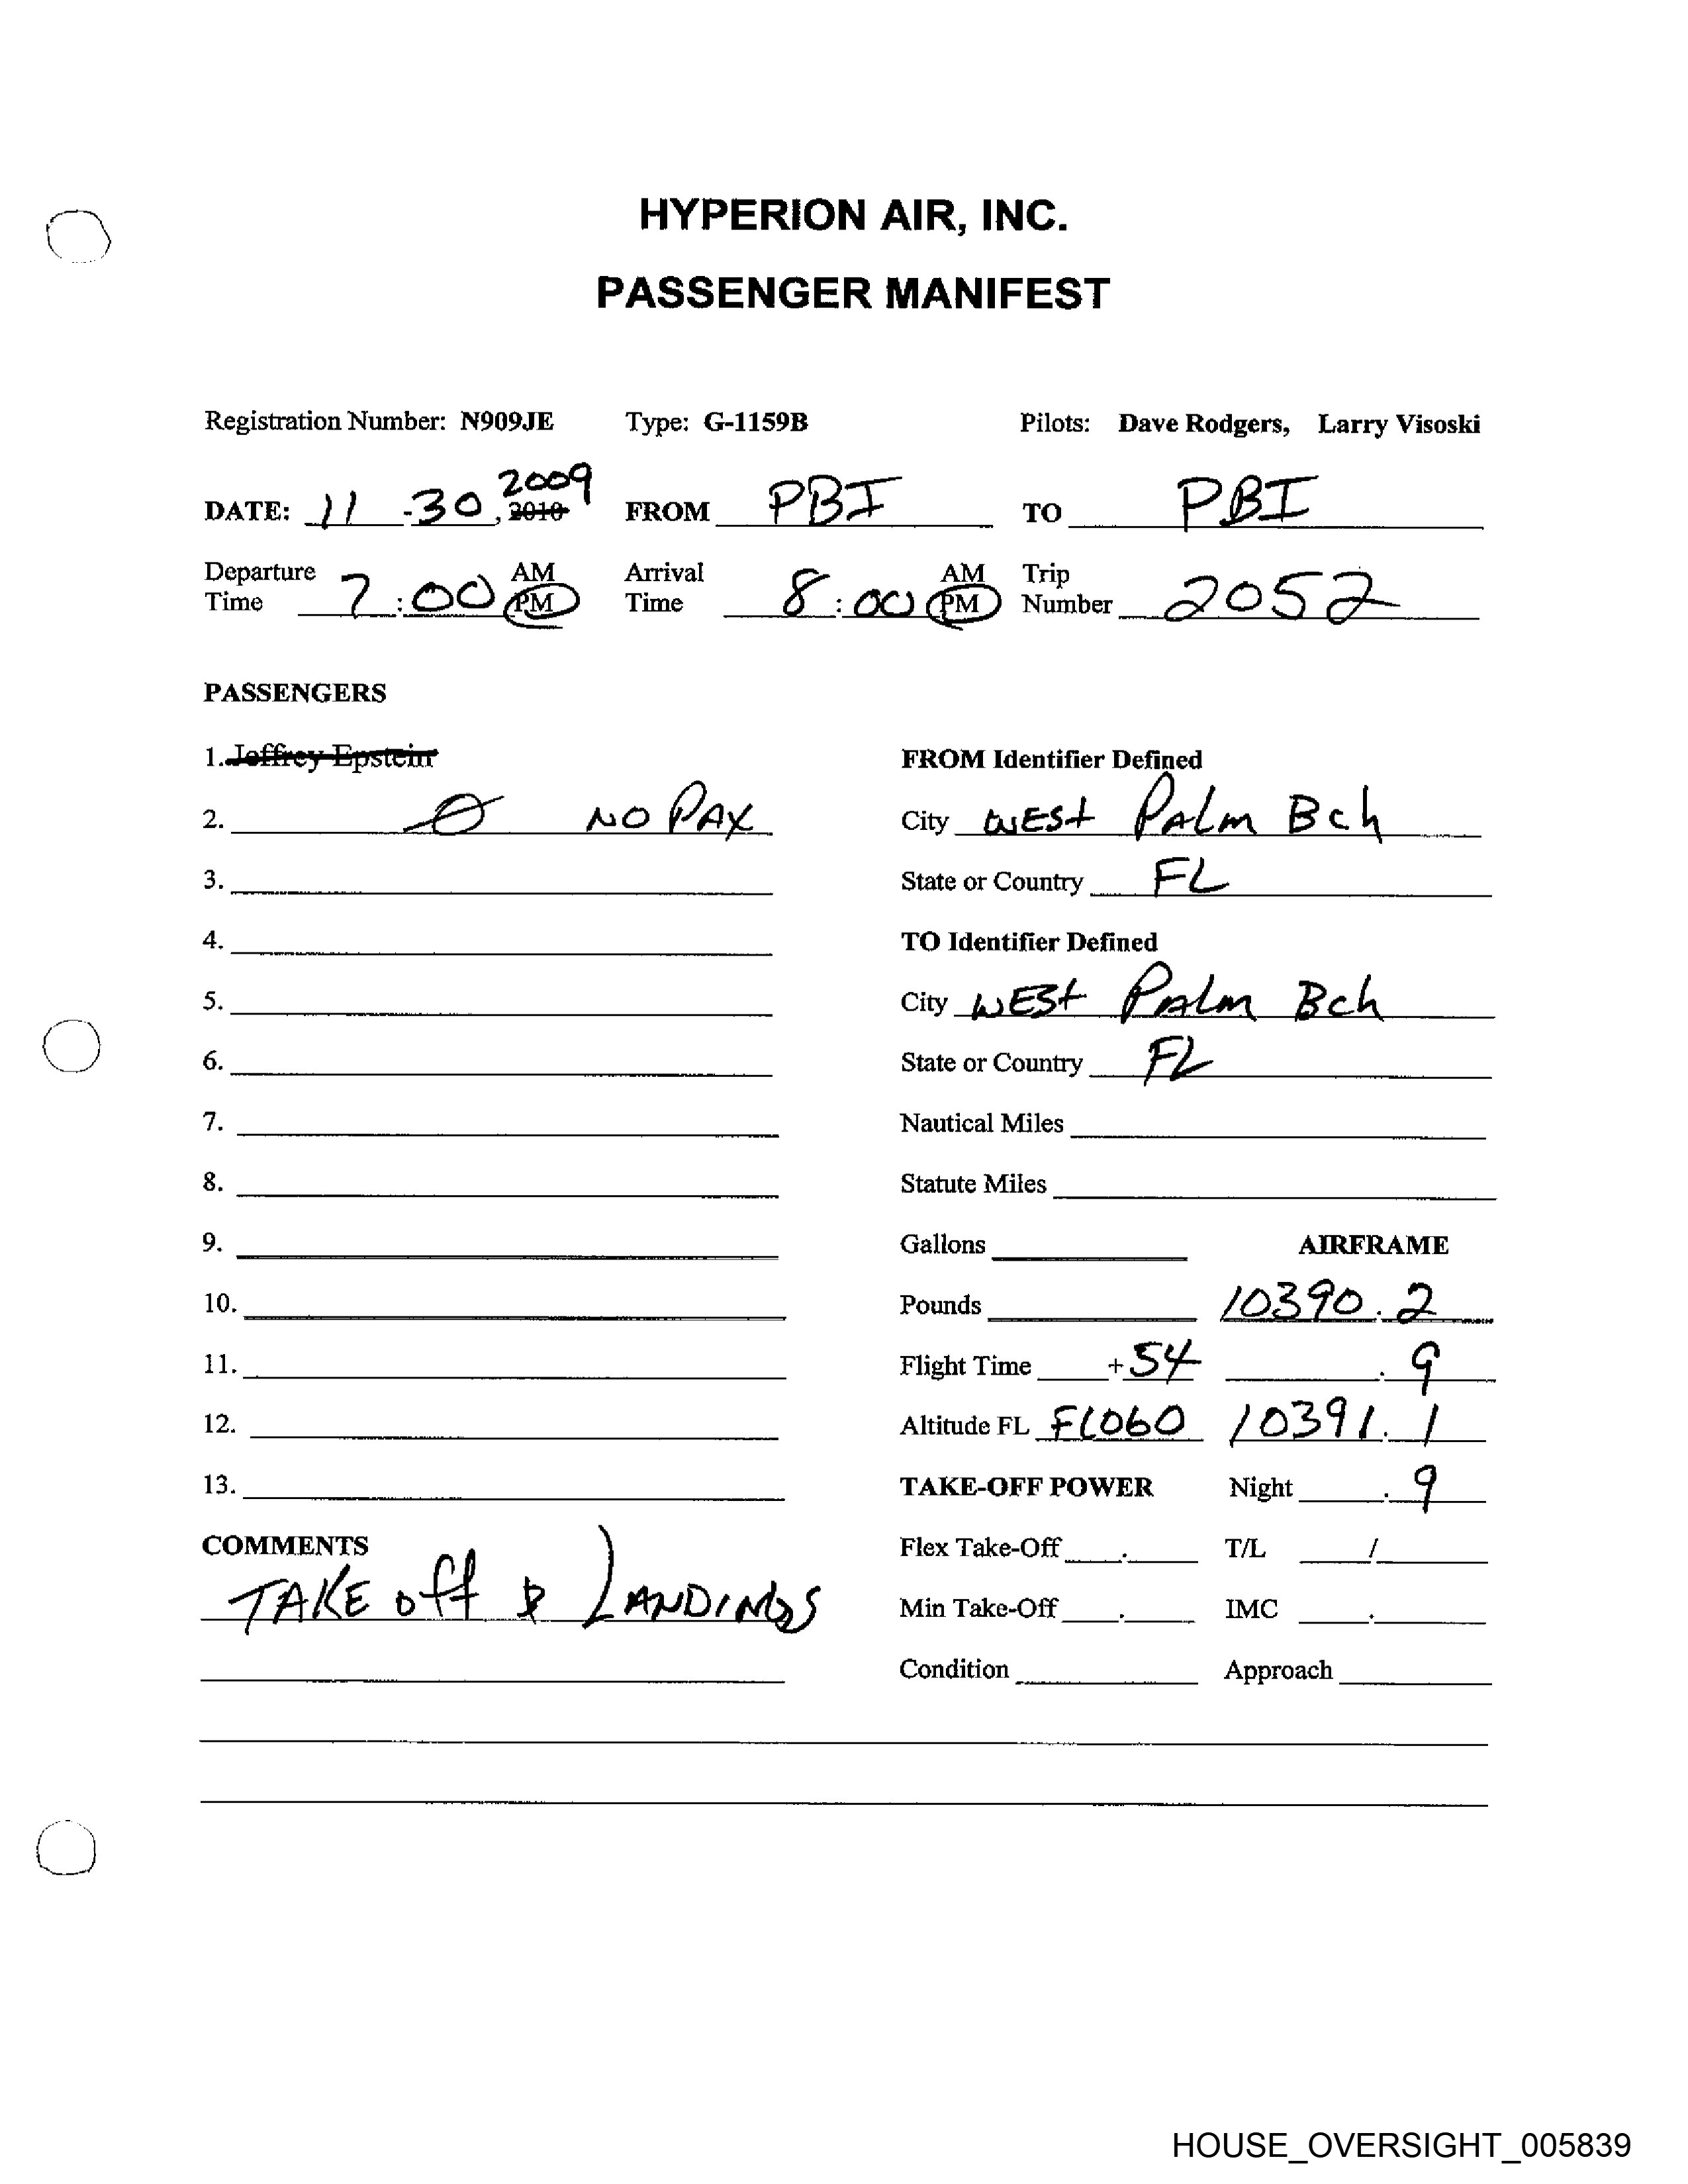 HYPERION AIR, INC.
PASSENGER MANIFEST
Registration Number: N909JE Type: G-1159B Pilots: Dave Rodgers, Larry Visoski
DATE: 11 -30, 2010 2009 FROM PBI TO PBI
Departure Time 7:00 AM PM Arrival Time 8:00 AM PM Trip Number 2052
PASSENGERS
1. Jeffrey Epstein
2. Ø NO PAX
3.
4.
5.
6.
7.
8.
9.
10.
11.
12.
13.
COMMENTS
TAKE off & LANDINGS
FROM Identifier Defined
City WEST Palm Bch
State or Country FL
TO Identifier Defined
City WEST Palm Bch
State or Country FL
Nautical Miles
Statute Miles
Gallons AIRFRAME
Pounds 10390.2
Flight Time +54 .9
Altitude FL FL060 10391.1
TAKE-OFF POWER Night .9
Flex Take-Off . T/L /
Min Take-Off . IMC .
Condition Approach
HOUSE_OVERSIGHT_005839